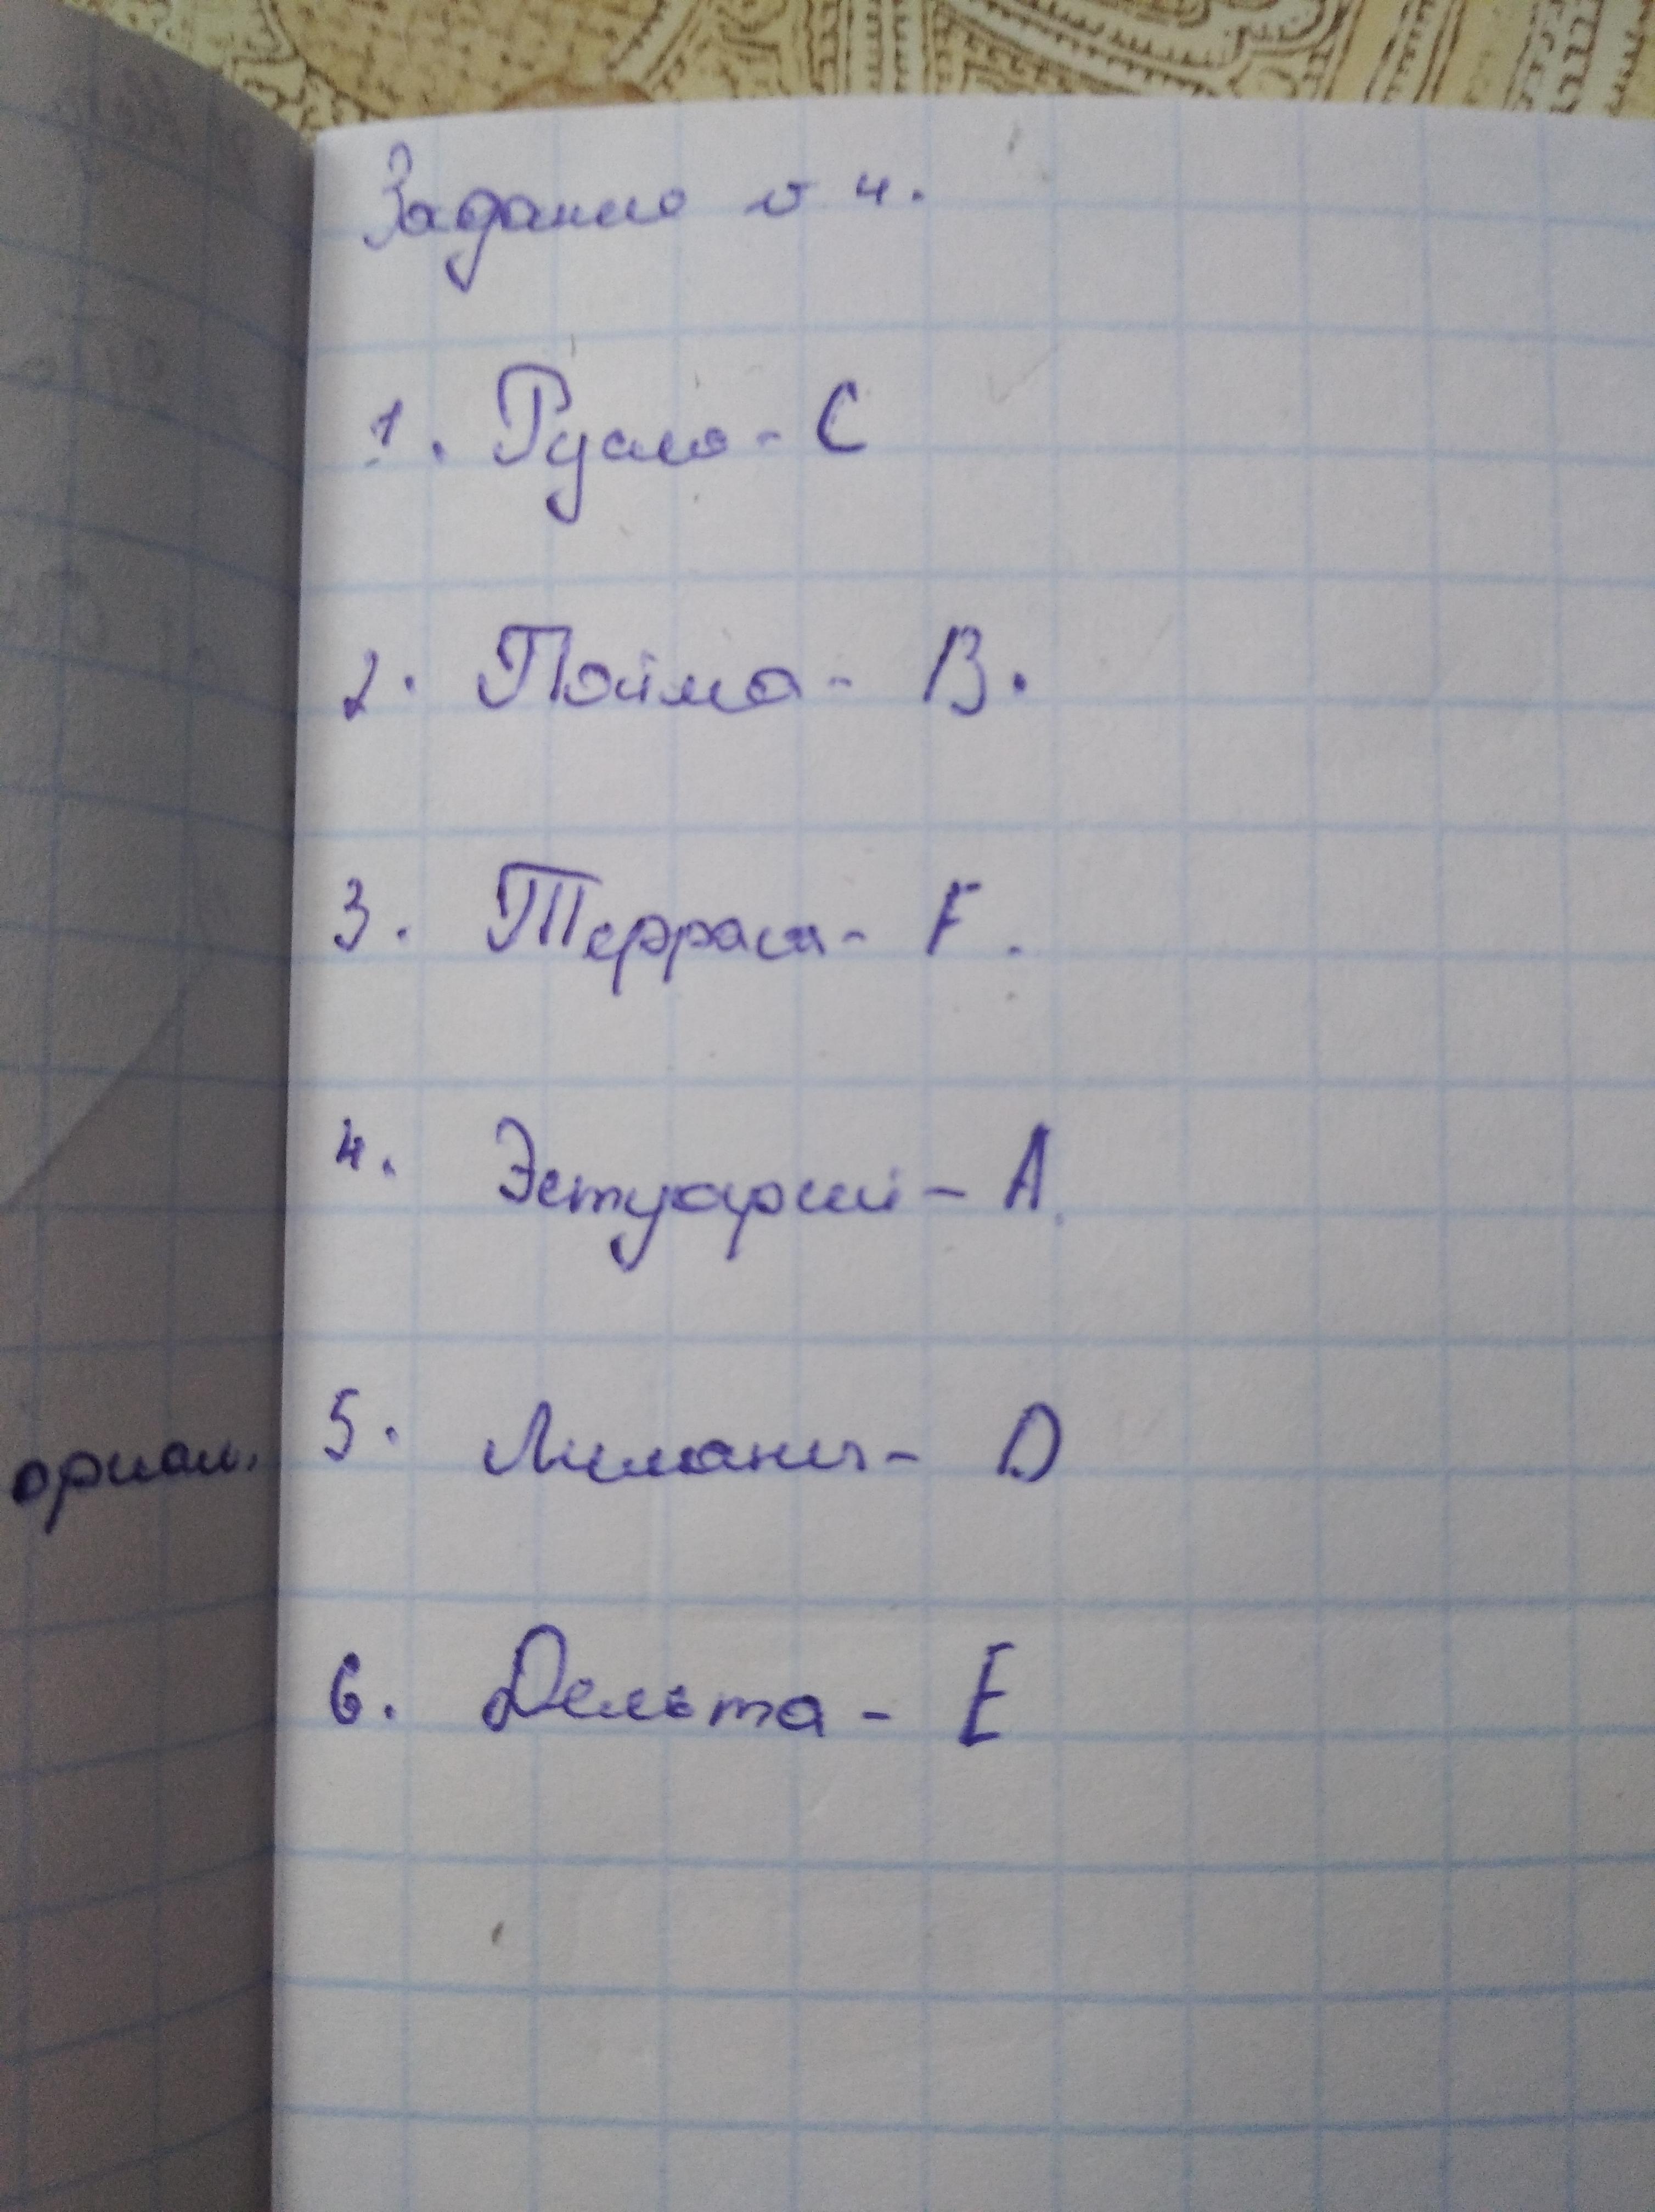 Задание № 4.
1. Русло - С
2. Пойма - B.
3. Терраса - F.
4. Эстуарий - A.
5. Лиманы - D
ориал.
6. Дельта - E